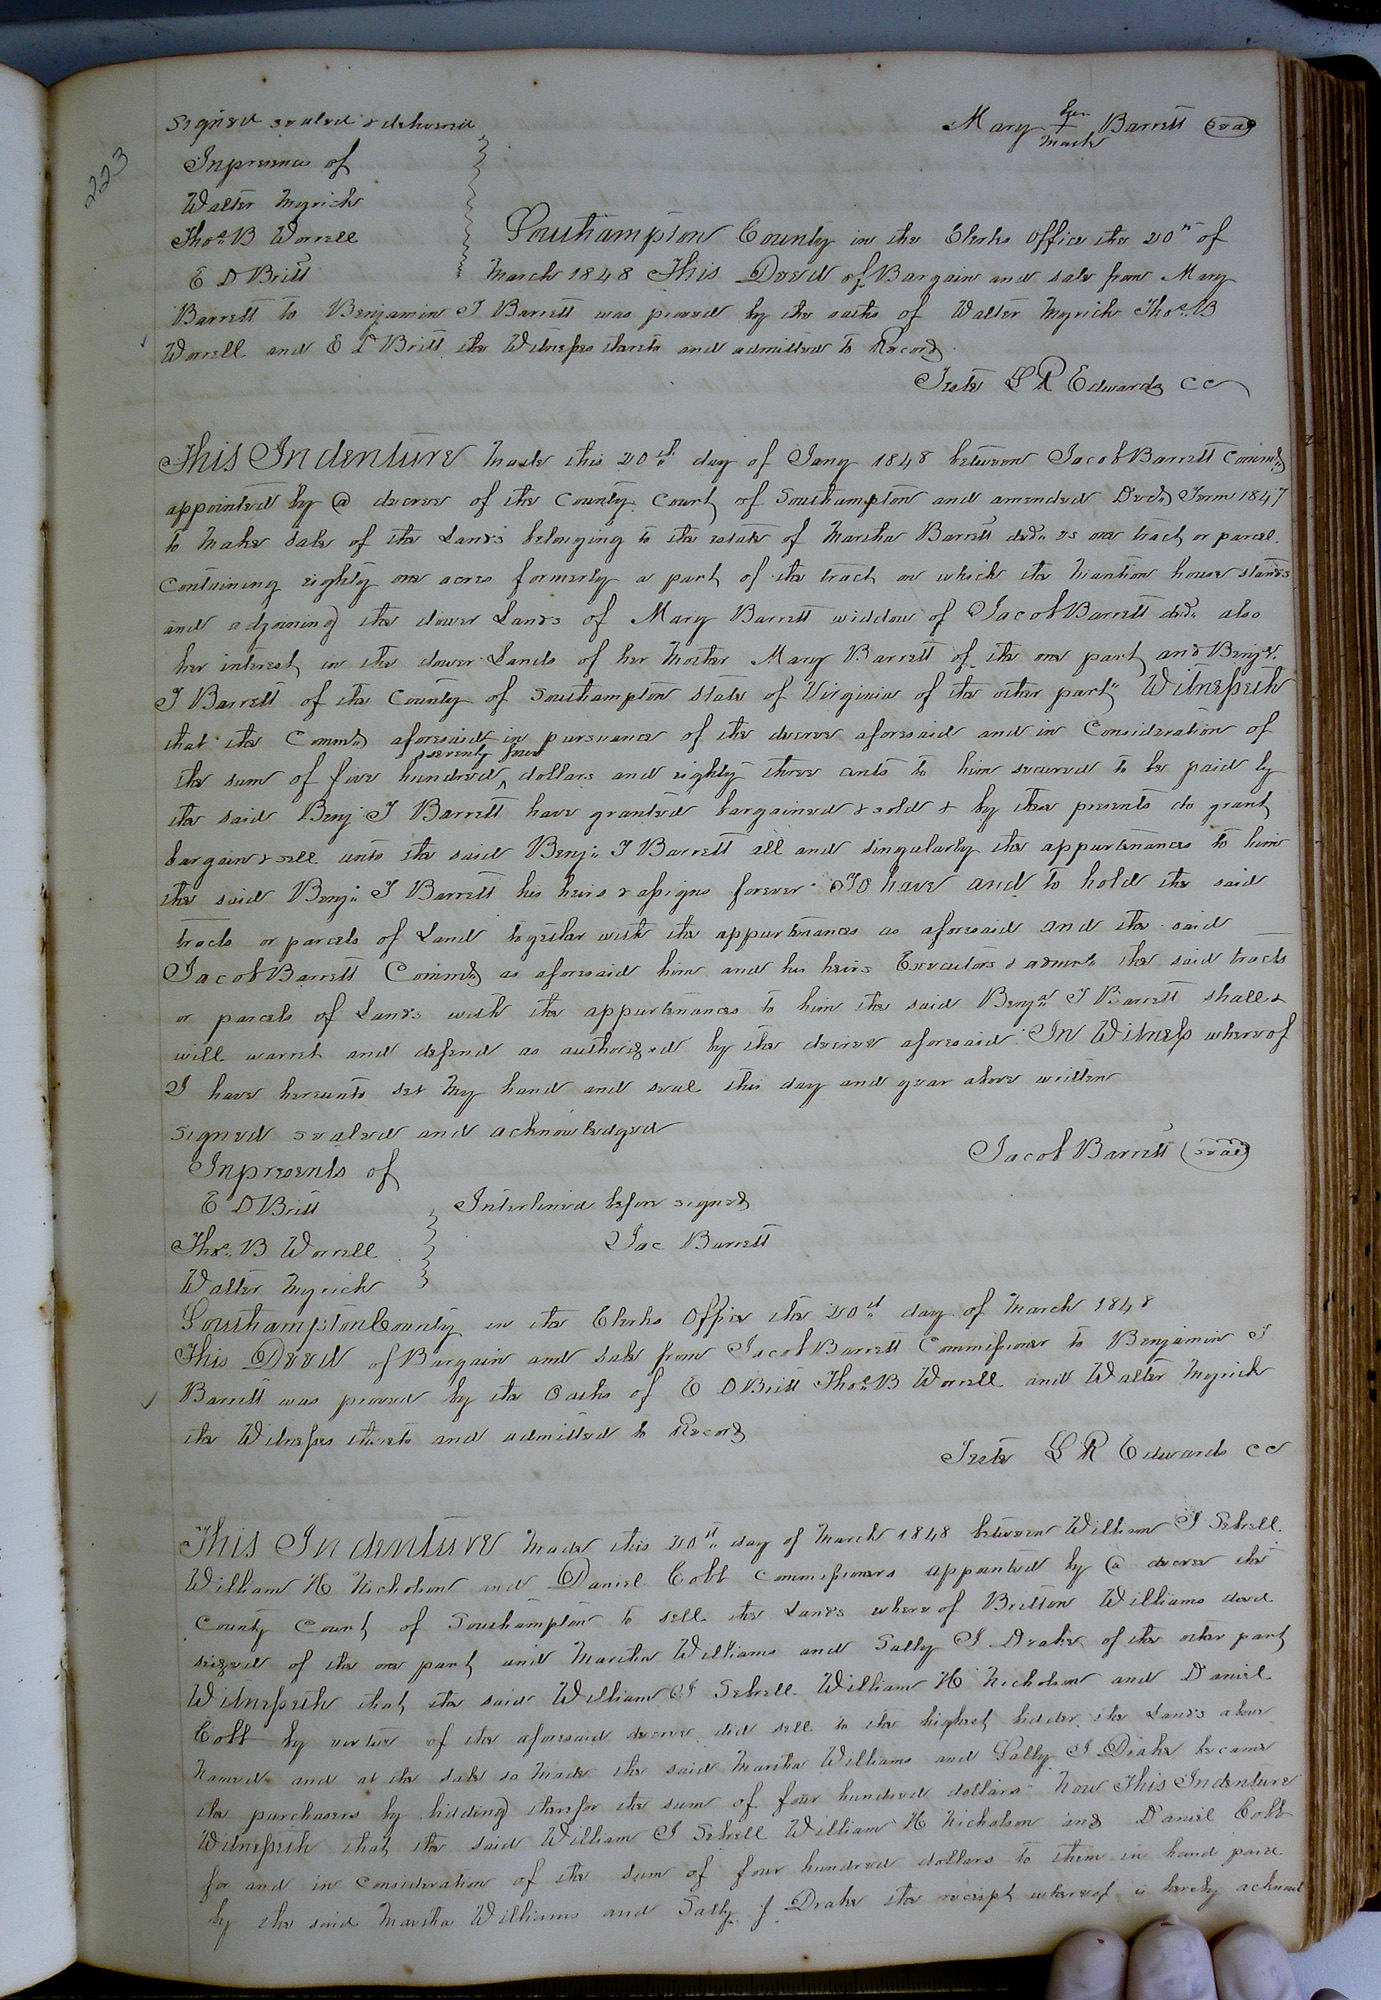 223
Signed sealed & delivered
Mary her + mark Barrett (seal)
Inpresence of
Walter Myrick
Thos. B Worrell
E D Britt
Southampton County in the Clerks Office the 20th of
March 1848 This Deed of Bargain and sale from Mary
Barrett to Benjamin J Barrett was proved by the oaths of Walter Myrick Thos. B
Worrell and E D Britt the Witnesses thereto and admitted to Record
Teste L R Edwards CC
This Indenture Made this 20th day of Jany 1848 between Jacob Barrett Commr
appointed by @ decree of the County Court of Southampton and amended Decr Term 1847
to Make sale of the Lands belonging to the estate of Martha Barrett decd. as one tract or parcel.
Containing eighty one acres formerly a part of the tract on which the Mantion house stands
and adjoining the dower Lands of Mary Barrett widdow of Jacob Barrett decd. also
her interest in the dower Lands of her Mother Mary Barrett of the one part and Benjn.
J Barrett of the County of Southampton State of Virginia of the other part Witnesseth
that the Commr aforesaid in pursuance of the decree aforesaid and in Consideration of
seventy four
the sum of five hundred ^ dollars and eighty three cents to him secured to be paid by
the said Benj J Barrett have granted bargained & sold & by these presents do grant
bargain & sell unto the said Benj. J Barrett all and singularly the appurtenances to him
the said Benj. J Barrett his heirs & assigns forever To have and to hold the said
tracts or parcels of Land together with the appurtenances as aforesaid and the said
Jacob Barrett Commr as aforesaid him and his heirs Executors & admrs. the said tracts
or parcels of Lands with the appurtenances to him the said Benjn. J Barrett shall &
will warret and defend as authorized by the decree aforesaid In Witness whereof
I have hereunto set My hand and seal this day and year above written
Signed sealed and acknowledged
Jacob Barrett (seal)
Inpresents of
E D Britt
Interlined before signed
Thos. B Worrell
Jac Barrett
Walter Myrick
Southampton County in the Clerks Office the 20th day of March 1848
This Deed of Bargain and Sale from Jacob Barrett Commissioner to Benjamin J
Barrett was proved by the Oaths of E D Britt Thos. B Worrell and Walter Myrick
the Witnesses thereto and admitted to Record
Teste L R Edwards CC
This Indenture Made this 20th day of March 1848 between William J Sebrell
William H Nicholson and Daniel Cobb Commissioners appointed by @ decree the
County Court of Southampton to sell the Lands whereof Britton Williams decd
seized of the one part and Martha Williams and Sally J Drake of the other part
Witnesseth that the said William J Sebrell William H Nicholson and Daniel
Cobb by vertue of the aforesaid decree did sell to the highest bidder the Lands above
Named and at the sale so Made the said Martha Williams and Sally J Drake became
the purchasers by bidding therefor the sum of four hundred dollars Now This Indenture
Witnesseth that the said William J Sebrell William H Nicholson and Daniel Cobb
for and in Consideration of the sum of four hundred dollars to them in hand paid
by the said Martha Williams and Sally J Drake the receipt whereof is hereby acknowl